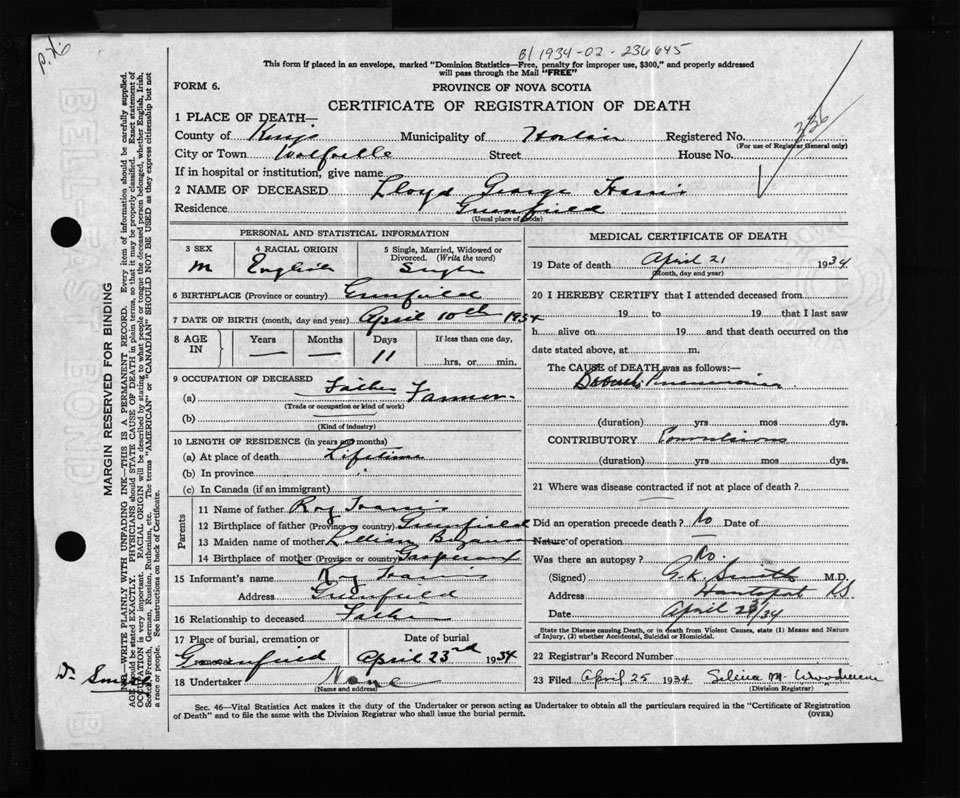 P.H.
B/ 1934-02-236645
This form if placed in an envelope, marked "Dominion Statistics—Free, penalty for improper use, $300," and properly addressed
will pass through the Mail "FREE"
FORM 6.
PROVINCE OF NOVA SCOTIA
CERTIFICATE OF REGISTRATION OF DEATH
1 PLACE OF DEATH—
County of Kings Municipality of Horton Registered No. 336
(For use of Registrar General only)
City or Town Wolfville Street House No.
If in hospital or institution, give name
2 NAME OF DECEASED Lloyd George
Residence Greenfield
(Usual place of abode)
PERSONAL AND STATISTICAL INFORMATION
3 SEX
M
4 RACIAL ORIGIN
English
5 Single, Married, Widowed or
Divorced. (Write the word)
Single
6 BIRTHPLACE (Province or country) Greenfield
7 DATE OF BIRTH (month, day and year) April 10th 1934
8 AGE
IN
Years
—
Months
—
Days
11
If less than one day,
hrs. or min.
9 OCCUPATION OF DECEASED Father
(a) Farmer
(Trade or occupation or kind of work)
(b)
(Kind of industry)
10 LENGTH OF RESIDENCE (in years and months)
(a) At place of death Lifetime
(b) In province
(c) In Canada (if an immigrant)
Parents
11 Name of father Roy
12 Birthplace of father (Province or country) Greenfield
13 Maiden name of mother Lillian
14 Birthplace of mother (Province or country)
15 Informant's name Roy
Address Greenfield
16 Relationship to deceased Father
17 Place of burial, cremation or
Greenfield
Date of burial
April 23rd 1934
18 Undertaker None
(Name and address)
MEDICAL CERTIFICATE OF DEATH
19 Date of death April 21 1934
(Month, day and year)
20 I HEREBY CERTIFY that I attended deceased from
19 to 19 that I last saw
h alive on 19 and that death occurred on the
date stated above, at m.
The CAUSE of DEATH was as follows:—
Pneumonia
(duration) yrs mos dys.
CONTRIBUTORY Convulsions
(duration) yrs mos dys.
21 Where was disease contracted if not at place of death?
Did an operation precede death? No Date of
Nature of operation
Was there an autopsy? No.
(Signed) Smith M.D.
Address Hantsport NS
Date April 23/34
State the Disease causing Death, or in death from Violent Causes, state (1) Means and Nature
of Injury, (2) whether Accidental, Suicidal or Homicidal.
22 Registrar's Record Number
23 Filed April 25 1934 Selina M.
(Division Registrar)
Sec. 46—Vital Statistics Act makes it the duty of the Undertaker or person acting as Undertaker to obtain all the particulars required in the "Certificate of Registration
of Death" and to file the same with the Division Registrar who shall issue the burial permit.
(OVER)
MARGIN RESERVED FOR BINDING
N.B.—WRITE PLAINLY WITH UNFADING INK—THIS IS A PERMANENT RECORD. Every item of information should be carefully supplied.
AGE should be stated EXACTLY. PHYSICIANS should STATE CAUSE OF DEATH in plain terms, so that it may be properly classified. Exact statement of
OCCUPATION is very important. RACIAL ORIGIN will be described by stating to what people or tongue the deceased person belonged, whether English, Irish,
Scotch, French, German, Russian, Ruthenian, etc. The terms "AMERICAN" or "CANADIAN" SHOULD NOT BE USED as they express citizenship but not
a race or people. See instructions on back of Certificate.
Dr. Smith